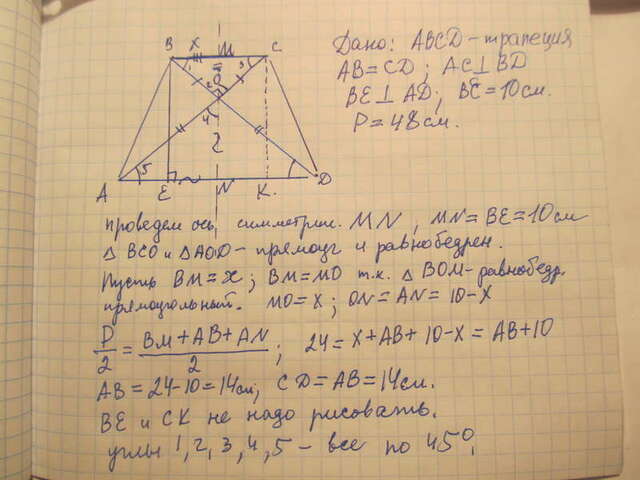 B x M C
1 2 3 O
4
5
A E N K. D
Дано: ABCD - трапеция
AB = CD ; AC ⊥ BD
BE ⊥ AD ; BE = 10 см.
P = 48 см.
проведем ось симметрии. MN, MN = BE = 10 см
△ BCO и △ AOD - прямоуг и равнобедрен.
Пусть BM = x ; BM = MO т.к. △ BOM - равнобедр.
прямоугольный. MO = x ; ON = AN = 10 - x
P/2 = (BM + AB + AN)/2 ; 24 = x + AB + 10 - x = AB + 10
AB = 24 - 10 = 14 см; CD = AB = 14 см.
BE и CK не надо рисовать.
углы 1, 2, 3, 4, 5 - все по 45°,